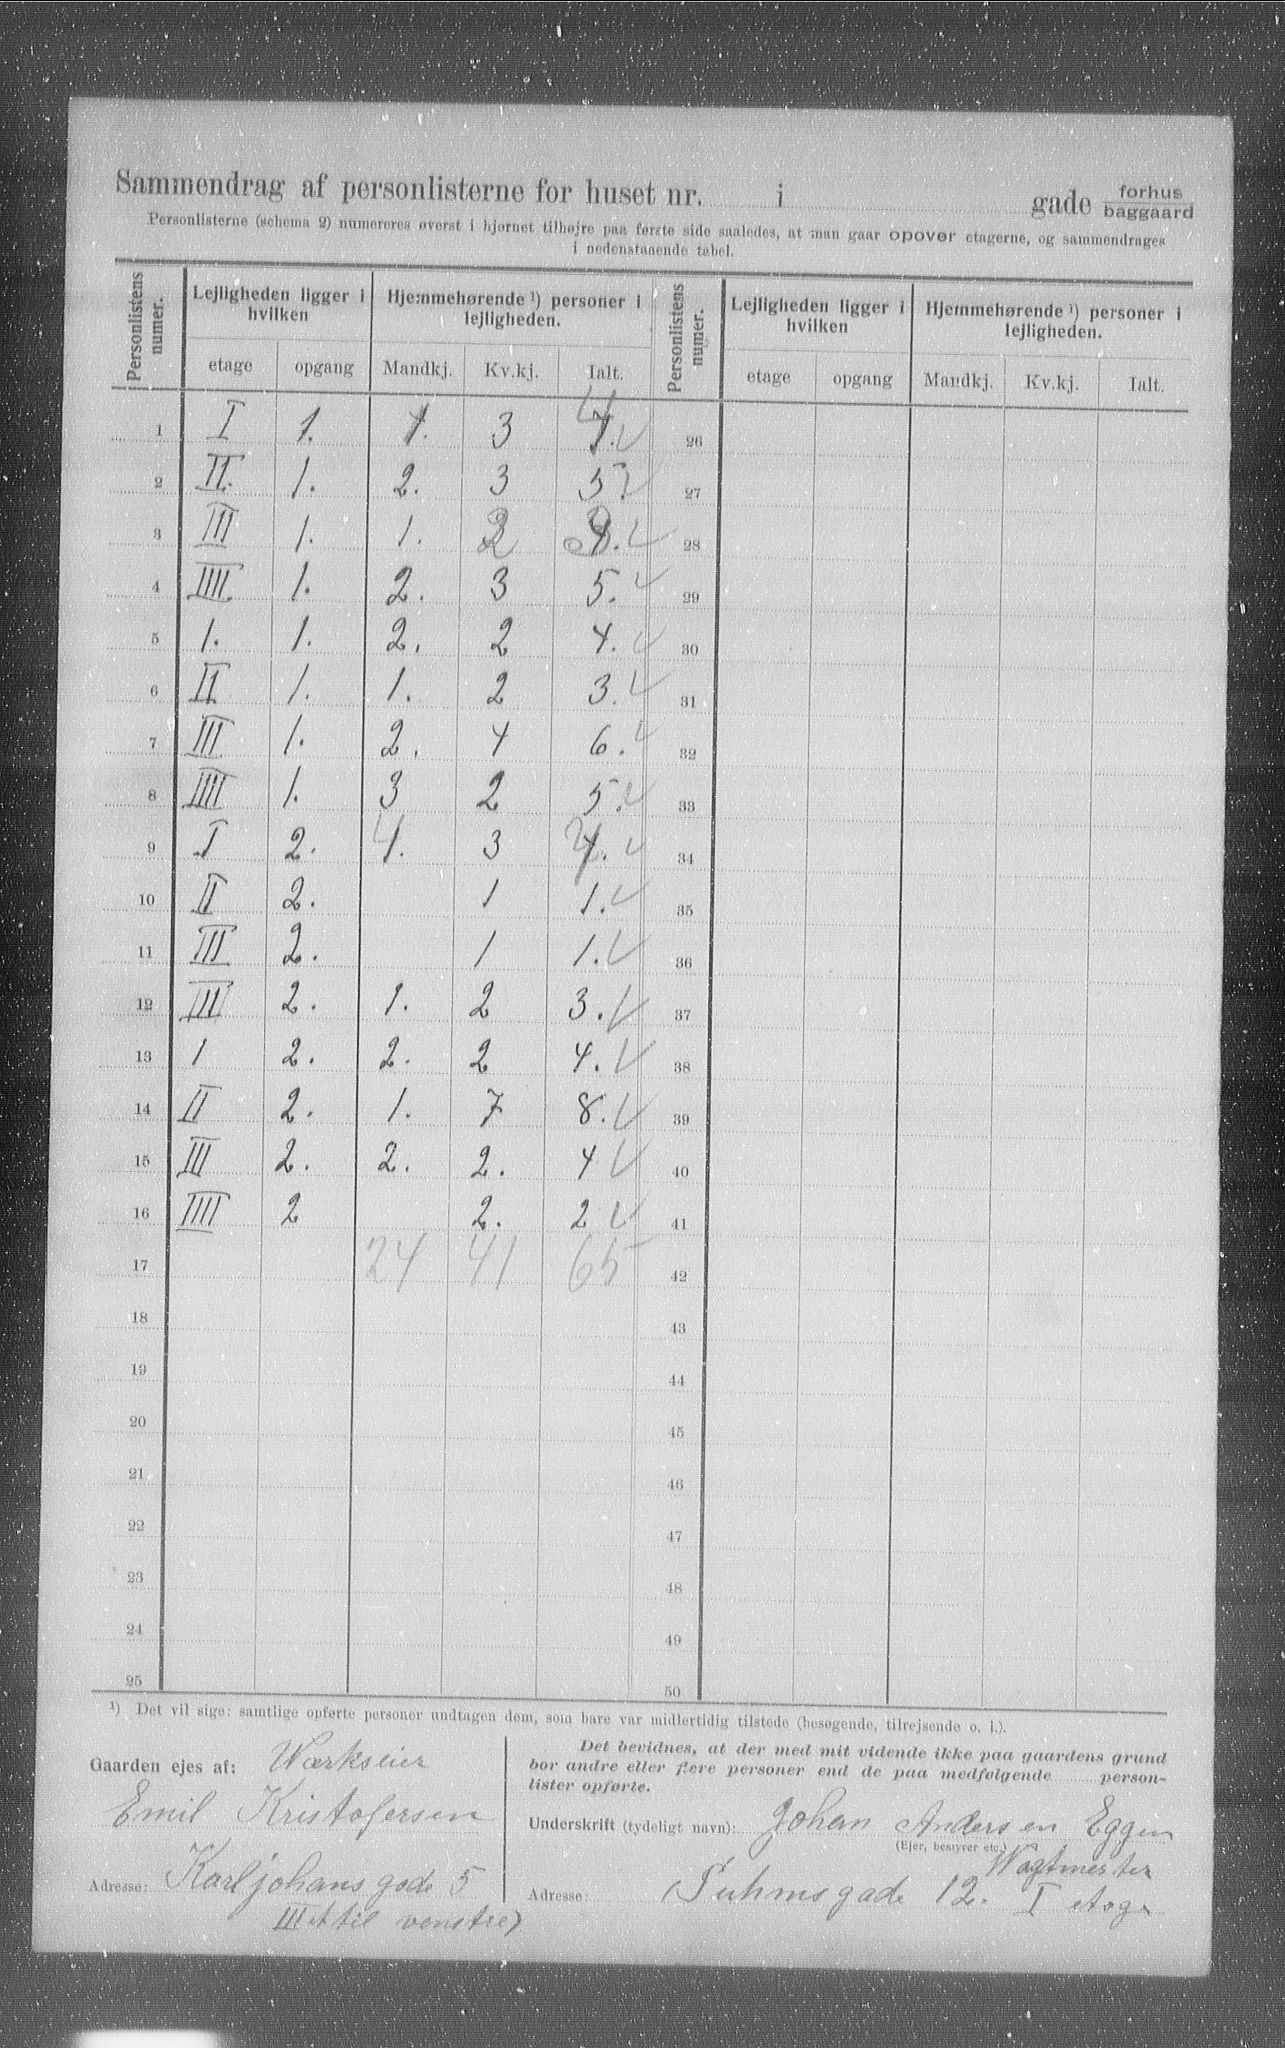 Sammendrag af personlisterne for huset nr. i gade forhus baggaard
Personlisterne (schema 2) numereres øverst i hjørnet tilhøjre paa første side saaledes, at man gaar opover etagerne, og sammendrages
i nedenstaaende tabel.
Personlistens numer. Lejligheden ligger i hvilken Hjemmehørende ¹) personer i lejligheden. Personlistens numer. Lejligheden ligger i hvilken Hjemmehørende ¹) personer i lejligheden.
etage opgang Mandkj. Kv.kj. Ialt. etage opgang Mandkj. Kv.kj. Ialt.
1 I 1. 1. 3 4. 26
2 II. 1. 2. 3 5. 27
3 III 1. 1. 2 3. 28
4 IIII. 1. 2. 3 5. 29
5 1. 1. 2. 2 4. 30
6 II 1. 1. 2 3. 31
7 III 1. 2. 4 6. 32
8 IIII 1. 3 2 5. 33
9 I 2. 4. 3 7. 34
10 II 2. 1 1. 35
11 III 2. 1 1. 36
12 IIII 2. 1. 2 3. 37
13 1 2. 2. 2 4. 38
14 II 2. 1. 7 8. 39
15 III 2. 2. 2. 4 40
16 IIII 2 2. 2 41
17 24 41 65 42
18 43
19 44
20 45
21 46
22 47
23 48
24 49
25 50
¹) Det vil sige: samtlige opførte personer undtagen dem, som bare var midlertidig tilstede (besøgende, tilrejsende o. l.).
Gaarden ejes af: Værkseier
Emil Kristofersen
Adresse: Karljohans gade 5
III et til venstre)
Det bevidnes, at der med mit vidende ikke paa gaardens grund
bor andre eller flere personer end de paa medfølgende person-
lister opførte.
Underskrift (tydeligt navn): Johan Andersen Eggen
(Ejer, bestyrer etc.)
Vagtmester
Adresse: Suhmsgade 12. I etage